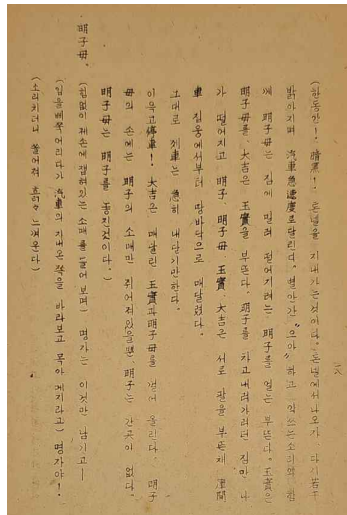 (한동안!. 暗黑!. 돈넬을 지내가는 것이다. 돈넬에서 나오자 다시 若干
밝아지며 汽車 急速度로 달린다. 별안간 “으아” 하고 악쓰는 소리와 함
께 明子母는 짐에 밀려 떨어지려는 明子를 얼는 부뜬다. 玉實은
明子母를, 大吉은 玉實을 부뜬다. 明子를 차고 내려가려던 짐만 나
가 떨어지고 明子 明子母 玉實 大吉은 서로 팔을 부뜬체 瞬間
車 집웅에서부터 땅바닥으로 매달렸다.
그대로 列車는 急히 내닫기만 한다.
이윽고 停車!. 大吉은 매달린 玉實과 明子母를 껄어 올린다. 明子
母의 손에는 明子의 소매만 쥐어져 있을뿐 明子는 간곳이 없다.
明子母는 明子를 놓친것이다.)
明子母. (힘없이 제손에 잽혀있는 소매를 들어보며) 명가는 이것만 남기고―
(입을 삐쭉어리다가 汽車의 지내온 쪽을 바라보고 목아 메지라고) 명가야!.
(소리치더니 쓸어져 흑흑 느껴운다)